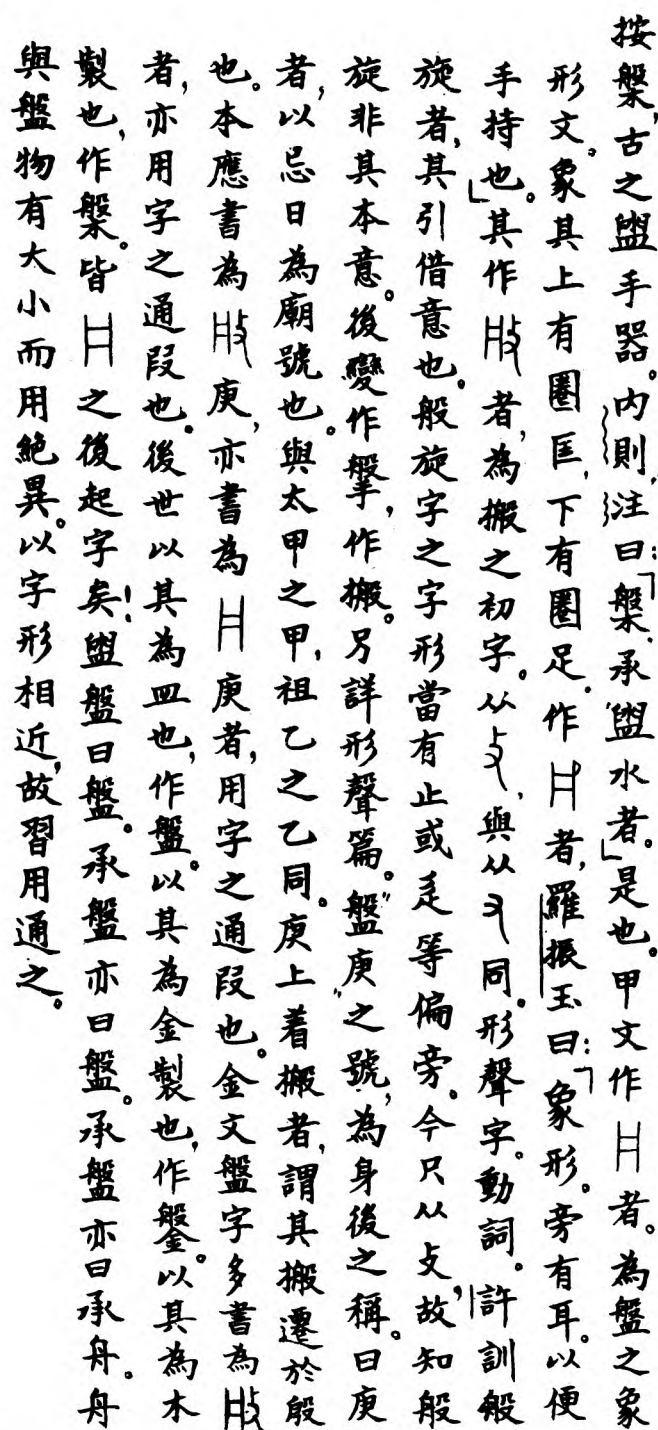 按槃,古之盥手器。内則,注曰:「槃,承盥水者。」是也。甲文作 者。為盤之象
形文。象其上有圈匡,下有圈足。作 者,羅振玉曰:「象形。旁有耳。以便
手持也。」其作 者,為搬之初字。从攴,與从又同。形聲字。動詞。許訓般
旋者,其引借意也。般旋字之字形當有止或辵等偏旁。今只从攴,故知般
旋非其本意。後變作搫,作搬。另詳形聲篇。“盤庚”之號,為身後之稱。曰庚
者,以忌日為廟號也。與太甲之甲,祖乙之乙同。庚上着搬者,謂其搬遷於殷
也。本應書為 庚,亦書為 庚者,用字之通叚也。金文盤字多書為
者,亦用字之通叚也。後世以其為皿也,作盤。以其為金製也,作鎜。以其為木
製也,作槃。皆 之後起字矣!盥盤曰盤。承盤亦曰盤。承盤亦曰承舟。舟
與盤物有大小而用絶異。以字形相近,故習用通之。